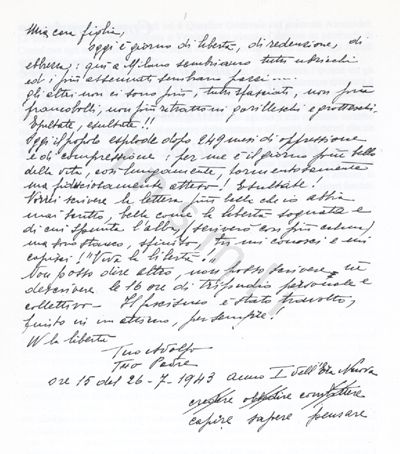 Mia cara figlia,
oggi è giorno di libertà, di redenzione, di
ebbrezza: qui a Milano sembriamo tutti ubriachi
ed i più assennati sembrano pazzi.....
gli altri non ci sono più, tutti spariti, non più
francobolli, non più ritrattoni gorilleschi e grotteschi.
Esultate, esultate!!
Oggi il popolo esplode dopo 249 mesi di oppressione
e di compressione: per me è il giorno più bello
della vita, così lungamente, tormentosamente
ma pazientemente atteso! Esultate!
Vorrei scrivere la lettera più bella che io abbia
mai scritto, bella come la libertà sognata e
di cui spunta l'alba, (scriverò con più calma)
ma sono stanco, sfinito! tu mi conosci e mi
capirai! "Viva la libertà!"
Non posso dire altro, non posso scrivere nè
descrivere le 16 ore di tripudio personale e
collettivo - Il fascismo è stato travolto,
finito in un attimo, per sempre!
W la libertà
Tuo Adolfo
Tuo Padre
ore 15 del 26-7-1943 anno I dell'Era Nuova
credere obbedire combattere
capire sapere pensare